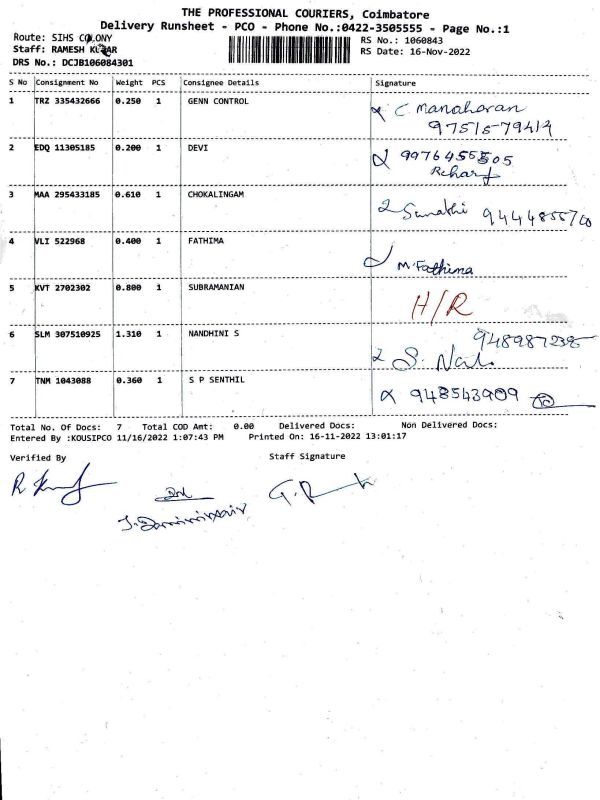 THE PROFESSIONAL COURIERS, Coimbatore
Delivery Runsheet - PCO - Phone No.:0422-3505555 - Page No.:1
Route: SIHS COLONY
RS No.: 1060843
Staff: RAMESH KUMAR
RS Date: 16-Nov-2022
DRS No.: DCJB106084301
S No Consignment No Weight PCS Consignee Details Signature
1 TRZ 335432666 0.250 1 GENN CONTROL C Manoharan
97515-79419
2 EDQ 11305185 0.200 1 DEVI
3 MAA 295433185 0.610 1 CHOKALINGAM
4 VLI 522968 0.400 1 FATHIMA M.Fathima
5 KVT 2702302 0.800 1 SUBRAMANIAN H/R
6 SLM 307510925 1.310 1 NANDHINI S
7 TNM 1043088 0.360 1 S P SENTHIL 948543909
Total No. Of Docs: 7 Total COD Amt: 0.00 Delivered Docs: Non Delivered Docs:
Entered By :KOUSIPCO 11/16/2022 1:07:43 PM Printed On: 16-11-2022 13:01:17
Verified By Staff Signature